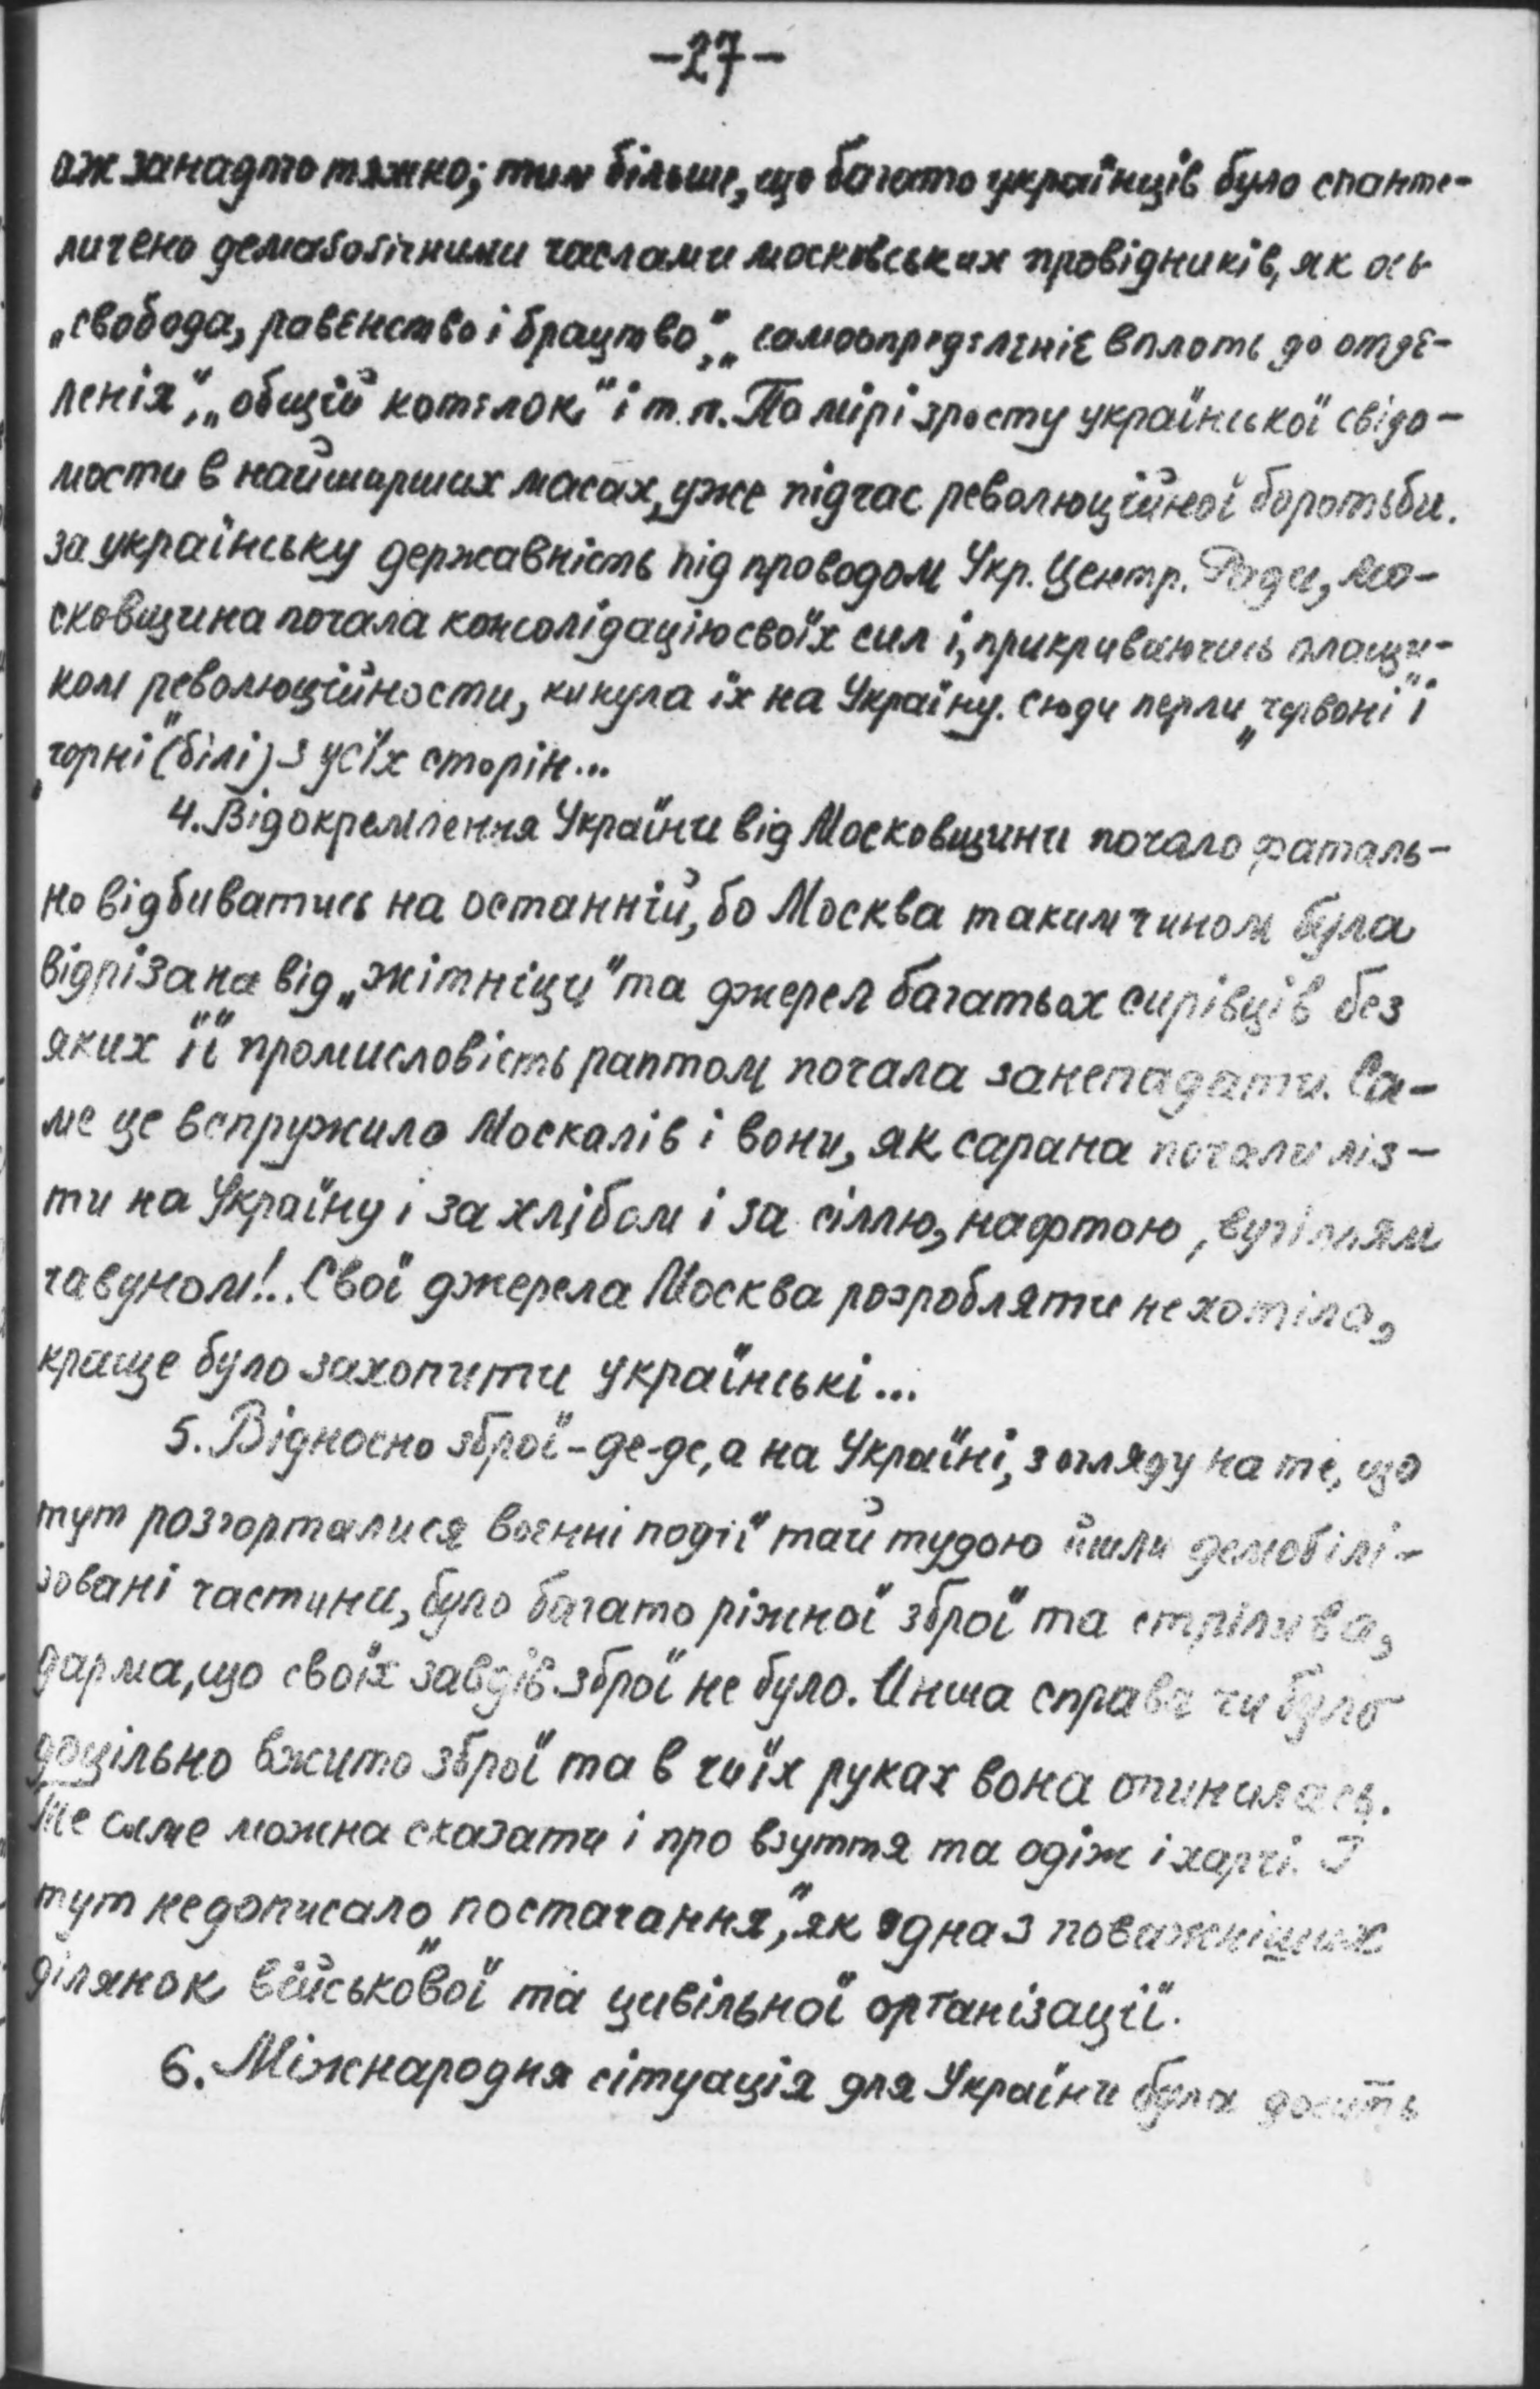 -27-
аж занадто тяжко; тим більше, що багато українців було спанте-
личено демаґоґічними гаслами московських провідників, як ось
„свобода, равенство і братство”, „самоопредєленіє вплоть до отдє-
ленія”, „общій котєлок” і т.п. По мірі зросту української свідо-
мости в найширших масах, уже підчас революційної боротьби.
за українську державність під проводом Укр. Центр. Ради, Мо-
сковщина почала консолідацію своїх сил і, прикриваючись плащи-
ком революційности, кинула їх на Україну. Сюди перли „червоні” і
„чорні” (білі) з усіх сторін...
4. Відокремлення України від Московщини почало фаталь-
но відбиватись на останній, бо Москва таким чином була
відрізана від „жітніци” та джерел багатьох сирівців без
яких її промисловість раптом почала занепадати. Са-
ме це вспружило Москалів і вони, як сарана почали ліз-
ти на Україну і за хлібом і за сіллю, нафтою, вугіллям
чавуном!.. Свої джерела Москва розробляти не хотіла,
краще було захопити українські...
5. Відносно зброї - де-де, а на Україні, з огляду на те, що
тут розгорталися воєнні події тай тудою йшли демобілі-
зовані частини, було багато ріжної зброї та стрілива,
дарма, що своїх завдів зброї не було. Инша справа чи було
доцільно вжито зброї та в чиїх руках вона опинилась.
Те саме можна сказати і про взуття та одіж і харчі. І
тут недописало „постачання”, як одна з поважніших
ділянок військової та цивільної орґанізації.
6. Міжнародня сітуація для України була досить